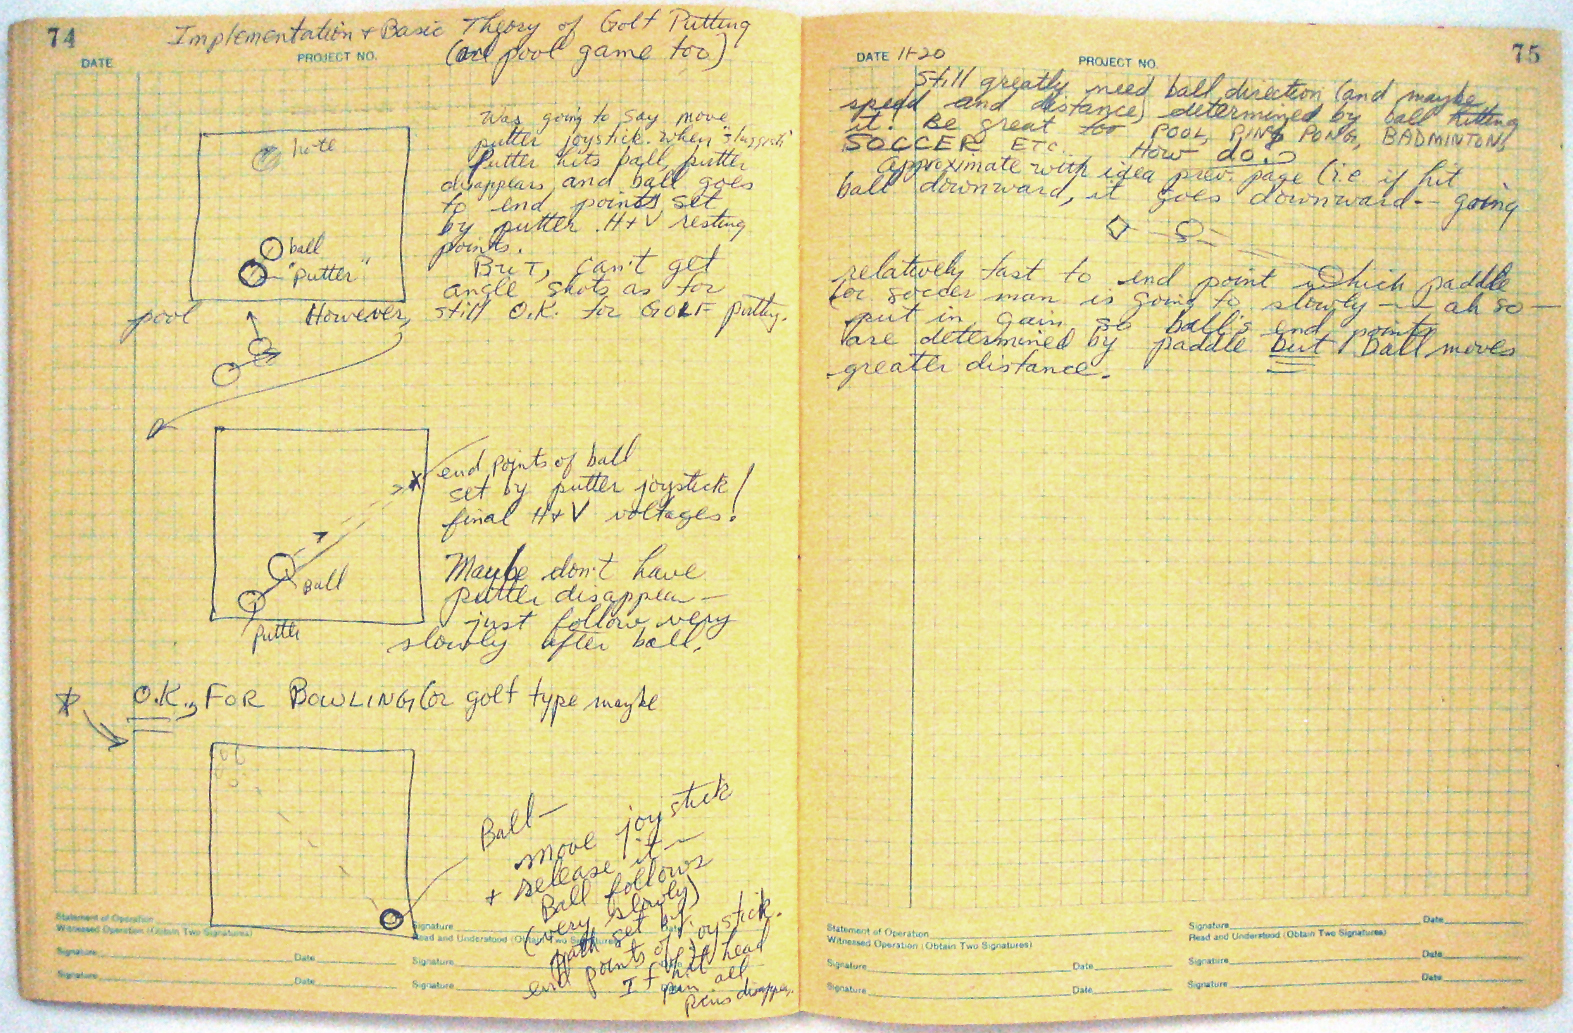 74
Implementation & Basic Theory of Golf Putting
(and pool game too)
DATE
PROJECT NO.
hole
ball
"putter"
Was going to say move
putter joystick. When "sluggish"
Putter hits ball, putter
disappears, and ball goes
to end points set
by putter H+V resting
points.
BUT, can't get
angle shots as for
pool
However, still O.K. for GOLF putting.
end points of ball
set by putter joystick!
final H+V voltages!
Ball
Putter
Maybe don't have
putter disappear—
just follow very
slowly after ball.
O.K., FOR BOWLING (or golf type maybe
Ball—
move joystick
+ release it—
Ball follows
(very slowly)
path set by
end points of joystick.
If hit head
pin all
pins disappear.
Statement of Operation
Witnessed Operation (Obtain Two Signatures)
Signature
Date
Read and Understood (Obtain Two Signatures)
Signature
Date
Signature
Date
Signature
Date
Signature
Date
75
DATE 11-20
PROJECT NO.
Still greatly need ball direction (and maybe
speed and distance) determined by ball hitting
it. Be great too POOL, PING PONG, BADMINTON,
SOCCER ETC. How do?
Approximate with idea prev. page (i.e. if hit
ball downward, it goes downward -- going
relatively fast to end point which paddle
(or soccer man is going to slowly -- ah so —
put in gain so ball's end points
are determined by paddle but ball moves
greater distance.
Statement of Operation
Witnessed Operation (Obtain Two Signatures)
Signature
Date
Read and Understood (Obtain Two Signatures)
Signature
Date
Signature
Date
Signature
Date
Signature
Date